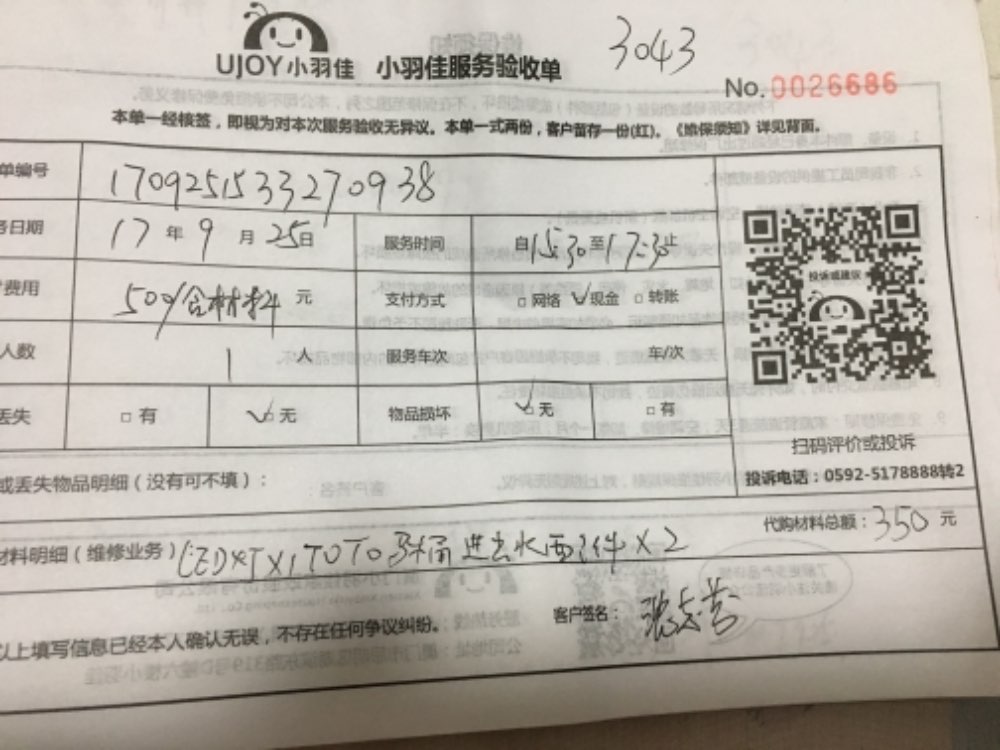 3043
UJOY小羽佳 小羽佳服务验收单
No. 0026686
本单一经核签，即视为对本次服务验收无异议。本单一式两份，客户留存一份(红)。《维保须知》详见背面。
单编号 1709251533270938
务日期 17年9月25日 服务时间 自15:30至17:30止
费用 509/含材料 元 支付方式 □网络 ✓现金 □转账
人数 1 人 服务车次 车/次
丢失 □有 ✓□无 物品损坏 ✓□无 □有
投诉或建议
扫码评价或投诉
投诉电话：0592-5178888转2
或丢失物品明细（没有可不填）：
代购材料总额：350元
材料明细（维修业务）LED灯X1 TOTO 进去水 件X2
客户签名：
以上填写信息已经本人确认无误，不存在任何争议纠纷。